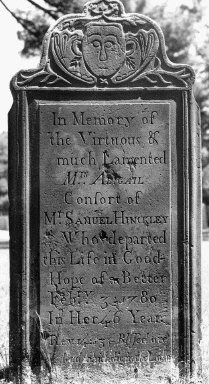 In Memory of
the Virtuous &
much Lamented
Mrs ABIGAIL
Consort of
Mr SAMUEL HINCKLEY
Who departed
this Life in Good
Hope of a Better
Febry 3d 1780
In Her 46 Year
Rev 14 13